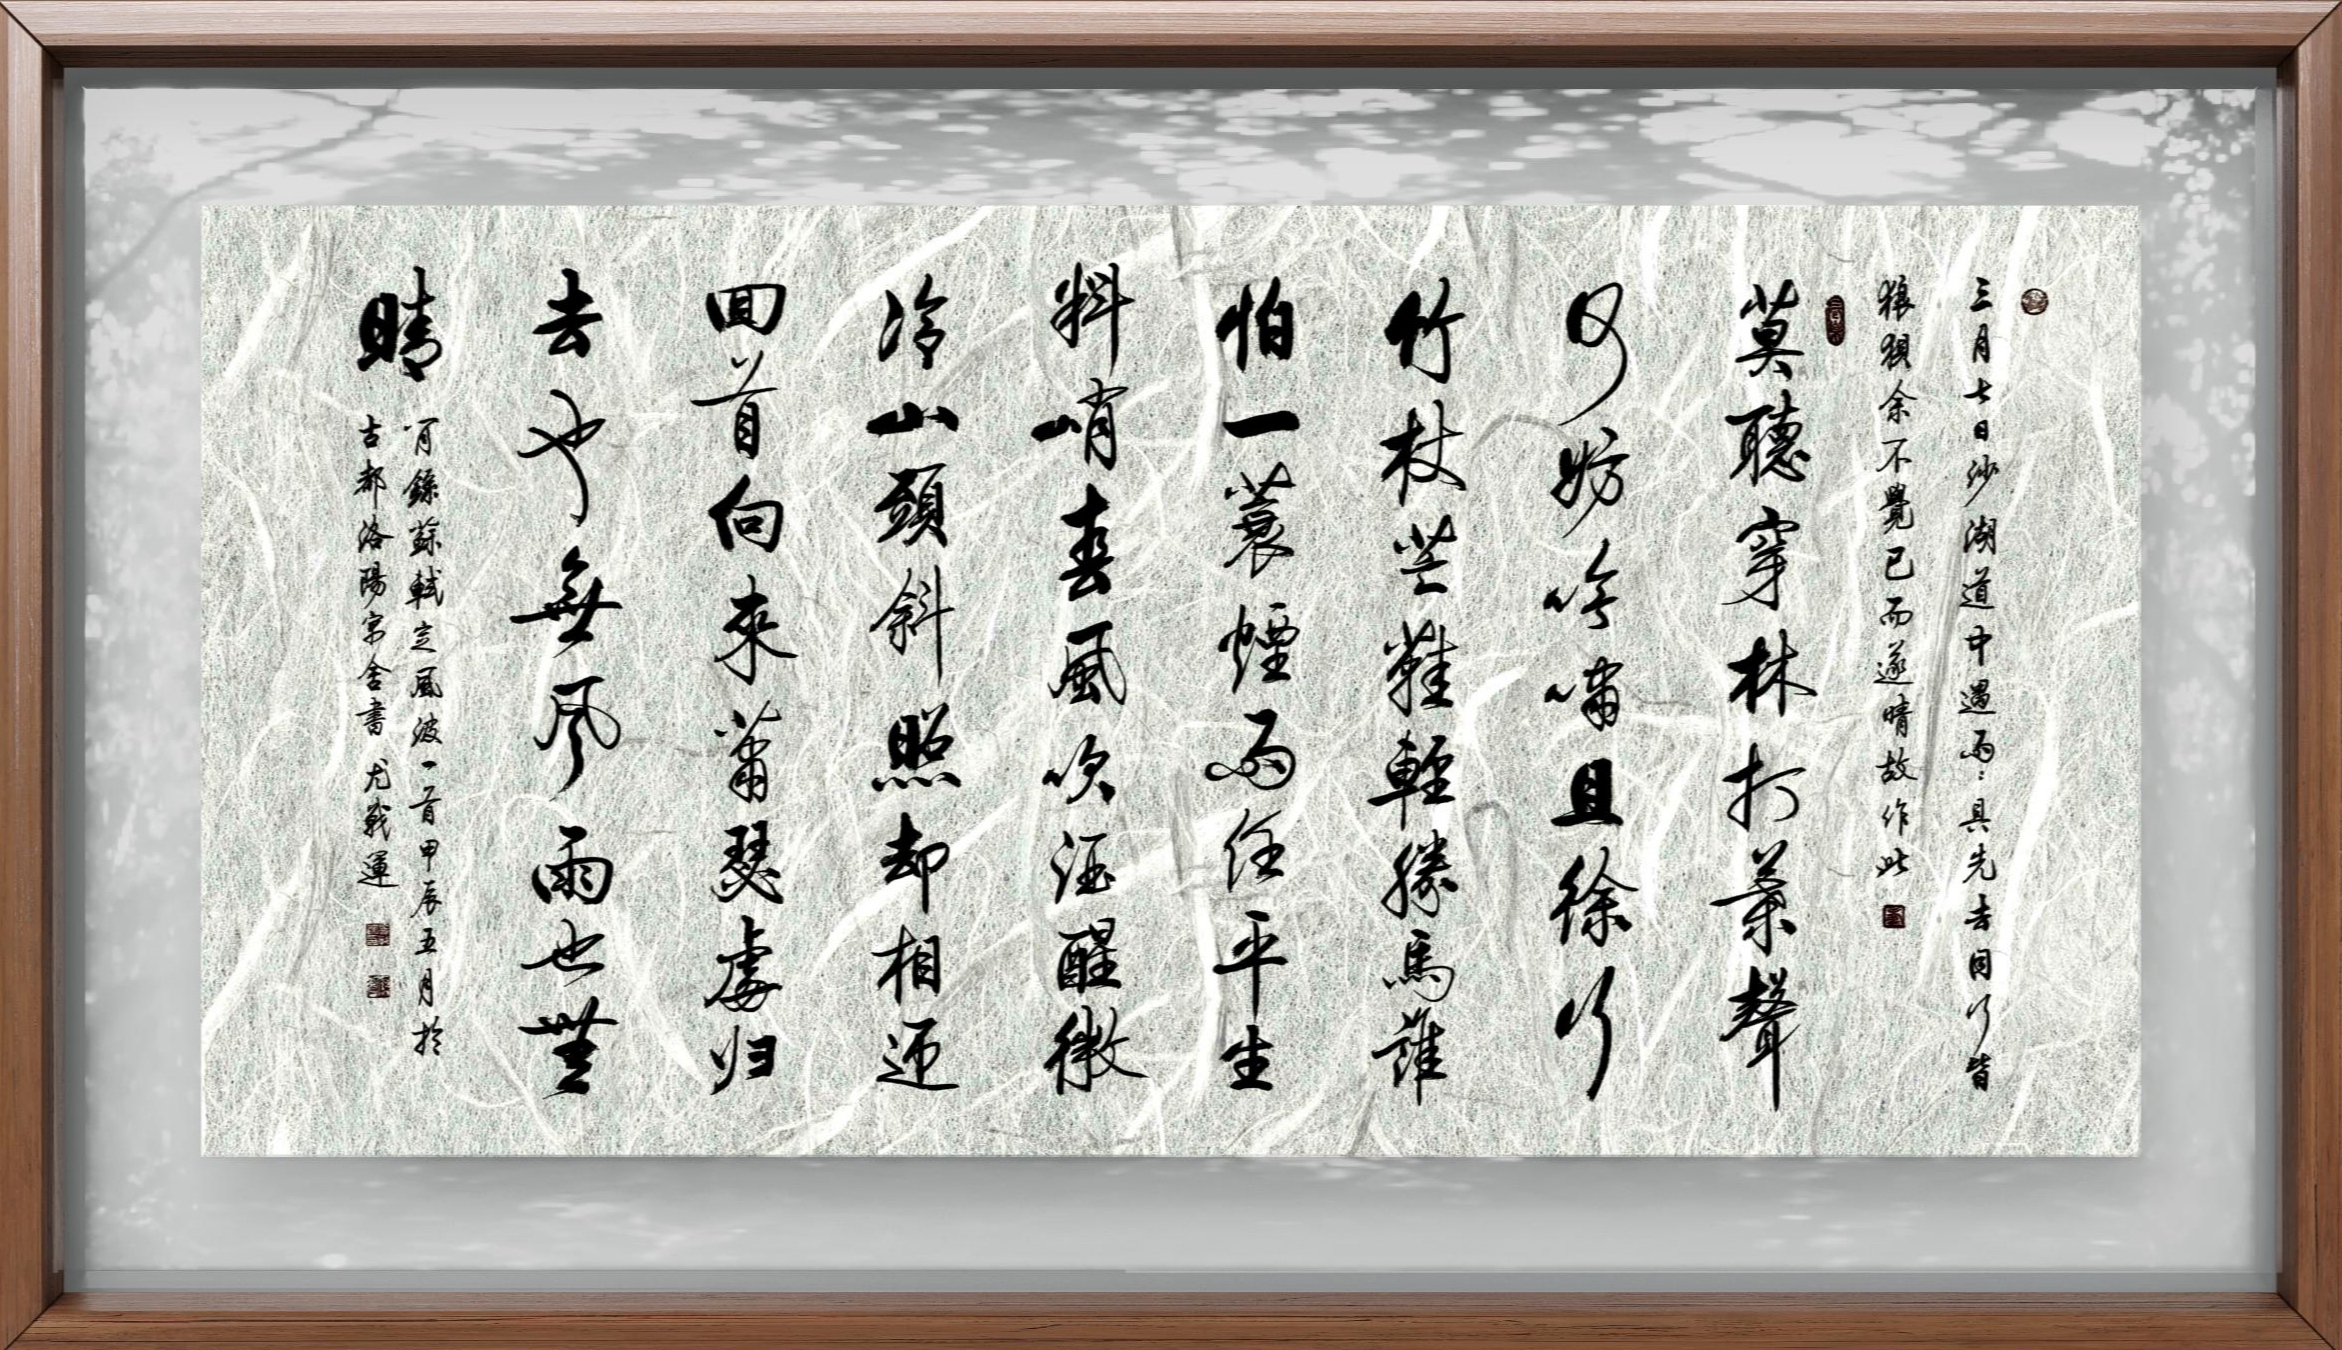 三月七日沙湖道中遇雨〻具先去同行皆
狼狽余不覺已而遂晴故作此
莫聽穿林打葉聲
何妨吟嘯且徐行
竹杖芒鞋輕勝馬誰
怕一蓑煙雨任平生
料峭春風吹酒醒微
冷山頭斜照却相迎
回首向來蕭瑟處归
去也無風雨也無
晴
錄蘇軾定風波一首甲辰五月於
古都洛陽舍書 尤戰運